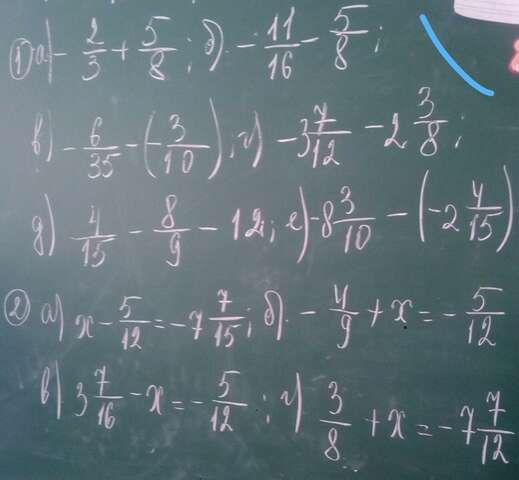 ① а) - 2/3 + 5/8; б) - 11/16 - 5/8;
в) - 6/35 - (- 3/10); г) - 3 7/12 - 2 3/8;
д) 4/15 - 8/9 - 12; е) - 8 3/10 - (- 2 4/15)
② а) x - 5/12 = - 7 7/15; б) - 4/9 + x = - 5/12
в) 3 7/16 - x = - 5/12; г) 3/8 + x = - 7 7/12